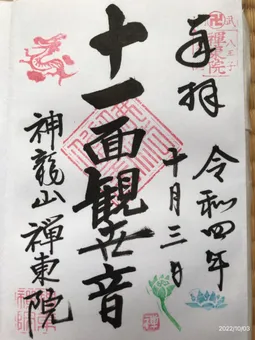 奉拝
武 八王子
禅東院
令和四年
十月三日
十一面観世音
神龍山 禅東院
禅
2022/10/03